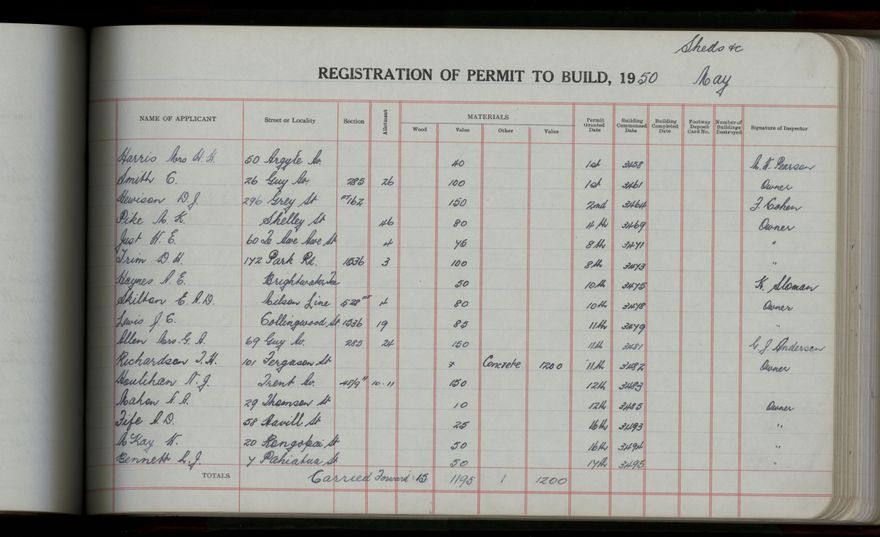 Sheds &c
REGISTRATION OF PERMIT TO BUILD, 1950 May
NAME OF APPLICANT Street or Locality Section Allotment MATERIALS Wood Value Other Value Permit Granted Date Building Commenced Date Building Completed Date Footway Deposit Card No. Number of Buildings Destroyed Signature of Inspector
Harris Mrs 50 Argyle Av. 40 1st 3458 Pearson
Smith C. 26 Guy Av. 285 26 100 1st 3461 Owner
Hewison D. J. 296 Grey St 150 2nd 3464 F. Cohen
Pike M K. Shelley St 46 80 4th 3469 Owner
Just W. E. 60 Te Awe Awe St 4 8th 3471 "
Trim D. H. 172 Park Rd. 1536 3 100 8th 3473 "
Haynes A. E. Brightwater Tce 50 10th 3475 K. Sloman
Skilton E. A. D. Milson Line 528 4 80 10th 3478 Owner
Lewis J C. Collingwood St 1536 19 85 11th 3479 "
Allen Mrs. G. A. 69 Guy Av. 285 24 11th 3481 Anderson
Richardson T. H. 101 Ferguson St Concrete 1200 11th 3482 Owner
Houlihan N. J. Trent Av. 10.11 150 12th 3483
Mahon 29 Thomson St 10 12th 3485 Owner
Fife A. D. 58 Havill St 25 16th 3493 "
McKay W. 20 Rangopai St 50 16th 3494 "
Bennett L. J. 7 Pahiatua St 50 17th 3495 "
TOTALS Carried Forward 15 1195 1 1200